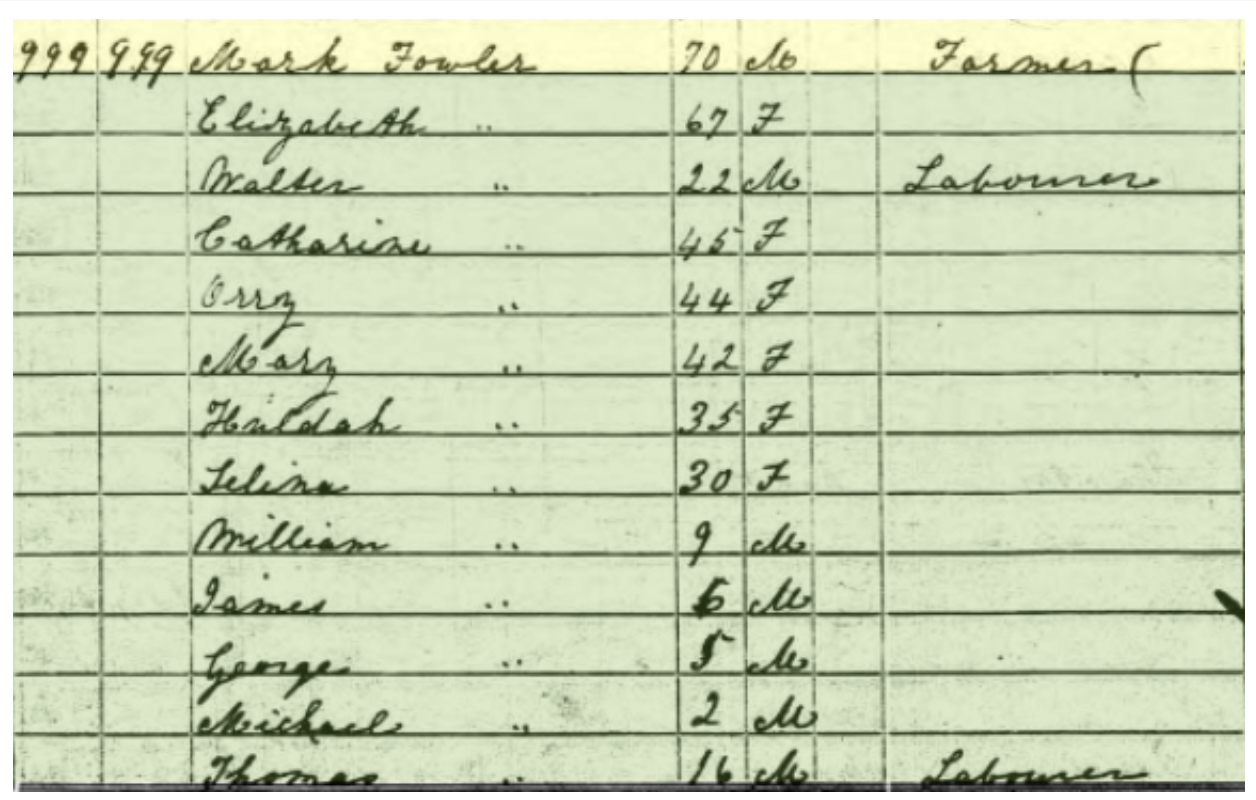 999 999 Mark Fowler 70 M Farmer (
Elizabeth " 67 F
Walter " 22 M Labourer
Catharine " 45 F
Orry " 44 F
Mary " 42 F
Huldah " 35 F
Selina " 30 F
William " 9 M
James " 6 M
George " 5 M
Michael " 2 M
Thomas " 16 M Labourer